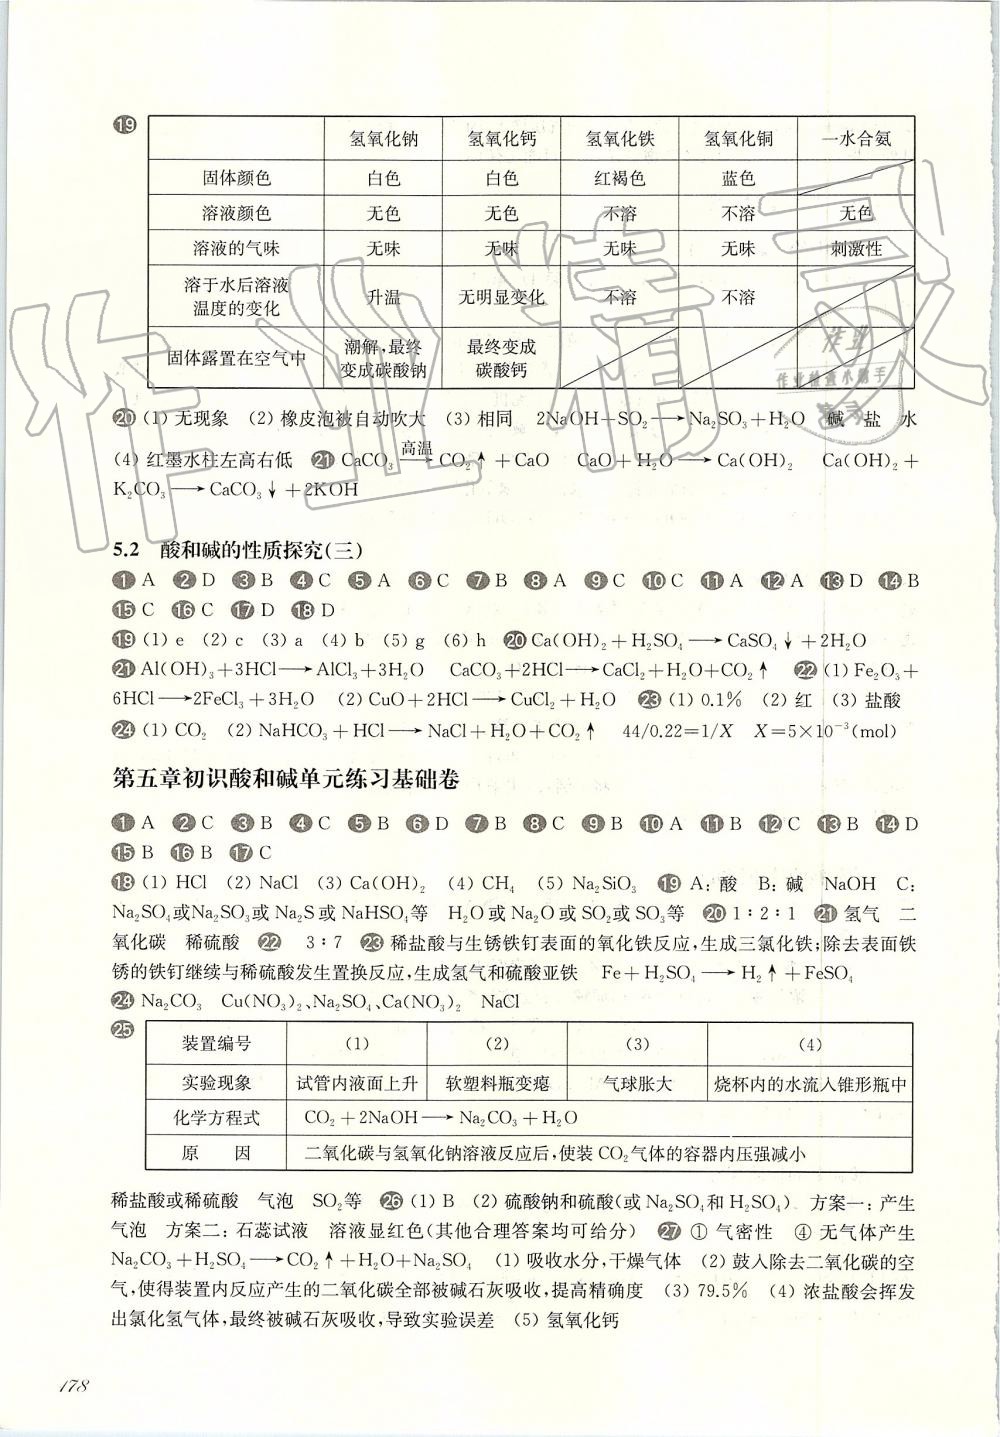 ⑲ 氢氧化钠 氢氧化钙 氢氧化铁 氢氧化铜 一水合氨
固体颜色 白色 白色 红褐色 蓝色
溶液颜色 无色 无色 不溶 不溶 无色
溶液的气味 无味 无味 无味 无味 刺激性
溶于水后溶液温度的变化 升温 无明显变化 不溶 不溶
固体露置在空气中 潮解,最终变成碳酸钠 最终变成碳酸钙
⑳ (1) 无现象 (2) 橡皮泡被自动吹大 (3) 相同 2NaOH+SO₂→Na₂SO₃+H₂O 碱 盐 水
(4) 红墨水柱左高右低 ㉑ CaCO₃ 高温→ CO₂↑+CaO CaO+H₂O→Ca(OH)₂ Ca(OH)₂+
K₂CO₃→CaCO₃↓+2KOH
5.2 酸和碱的性质探究(三)
① A ② D ③ B ④ C ⑤ A ⑥ C ⑦ B ⑧ A ⑨ C ⑩ C ⑪ A ⑫ A ⑬ D ⑭ B
⑮ C ⑯ C ⑰ D ⑱ D
⑲ (1) e (2) c (3) a (4) b (5) g (6) h ⑳ Ca(OH)₂+H₂SO₄→CaSO₄↓+2H₂O
㉑ Al(OH)₃+3HCl→AlCl₃+3H₂O CaCO₃+2HCl→CaCl₂+H₂O+CO₂↑ ㉒ (1) Fe₂O₃+
6HCl→2FeCl₃+3H₂O (2) CuO+2HCl→CuCl₂+H₂O ㉓ (1) 0.1% (2) 红 (3) 盐酸
㉔ (1) CO₂ (2) NaHCO₃+HCl→NaCl+H₂O+CO₂↑ 44/0.22=1/X X=5×10⁻³(mol)
第五章初识酸和碱单元练习基础卷
① A ② C ③ B ④ C ⑤ B ⑥ D ⑦ B ⑧ C ⑨ B ⑩ A ⑪ B ⑫ C ⑬ B ⑭ D
⑮ B ⑯ B ⑰ C
⑱ (1) HCl (2) NaCl (3) Ca(OH)₂ (4) CH₄ (5) Na₂SiO₃ ⑲ A:酸 B:碱 NaOH C:
Na₂SO₄或Na₂SO₃或Na₂S或NaHSO₄等 H₂O或Na₂O或SO₂或SO₃等 ⑳ 1∶2∶1 ㉑ 氢气 二
氧化碳 稀硫酸 ㉒ 3∶7 ㉓ 稀盐酸与生锈铁钉表面的氧化铁反应,生成三氯化铁;除去表面铁
锈的铁钉继续与稀硫酸发生置换反应,生成氢气和硫酸亚铁 Fe+H₂SO₄→H₂↑+FeSO₄
㉔ Na₂CO₃ Cu(NO₃)₂、Na₂SO₄、Ca(NO₃)₂ NaCl
㉕ 装置编号 (1) (2) (3) (4)
实验现象 试管内液面上升 软塑料瓶变瘪 气球胀大 烧杯内的水流入锥形瓶中
化学方程式 CO₂+2NaOH→Na₂CO₃+H₂O
原 因 二氧化碳与氢氧化钠溶液反应后,使装CO₂气体的容器内压强减小
稀盐酸或稀硫酸 气泡 SO₂等 ㉖ (1) B (2) 硫酸钠和硫酸(或Na₂SO₄和H₂SO₄) 方案一:产生
气泡 方案二:石蕊试液 溶液显红色(其他合理答案均可给分) ㉗ ① 气密性 ④ 无气体产生
Na₂CO₃+H₂SO₄→CO₂↑+H₂O+Na₂SO₄ (1) 吸收水分,干燥气体 (2) 鼓入除去二氧化碳的空
气,使得装置内反应产生的二氧化碳全部被碱石灰吸收,提高精确度 (3) 79.5% (4) 浓盐酸会挥发
出氯化氢气体,最终被碱石灰吸收,导致实验误差 (5) 氢氧化钙
178
作业精灵